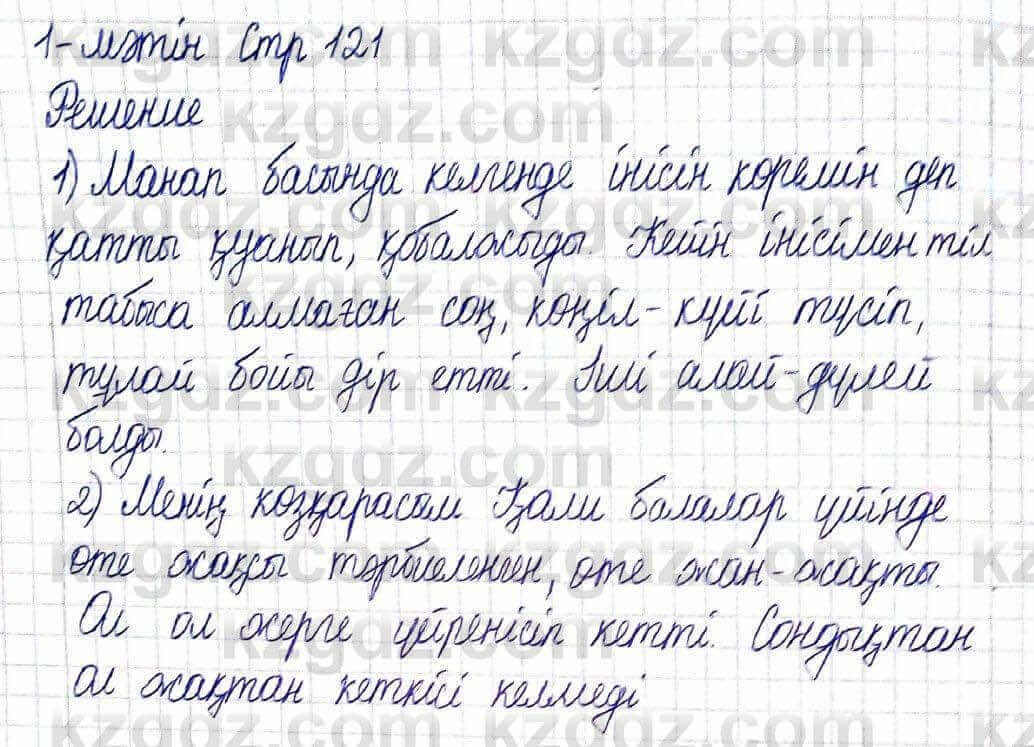 1-мәтін Стр 121
Решение
1) Манап басында келгенде інісін көремін деп
қатты қуанып, қобалжыды. Кейін інісімен тіл
табыса алмаған соң, көңіл-күйі түсіп,
тұлай бойы дір етті. Іші алай-дүлей
болды.
2) Менің көзқарасым Қали балалар үйінде
өте жақсы тәрбиеленген, өте жан-жақты.
Ол ол жерге үйренісіп кетті. Сондықтан
ол жақтан кеткісі келмеді
kzgdz.com